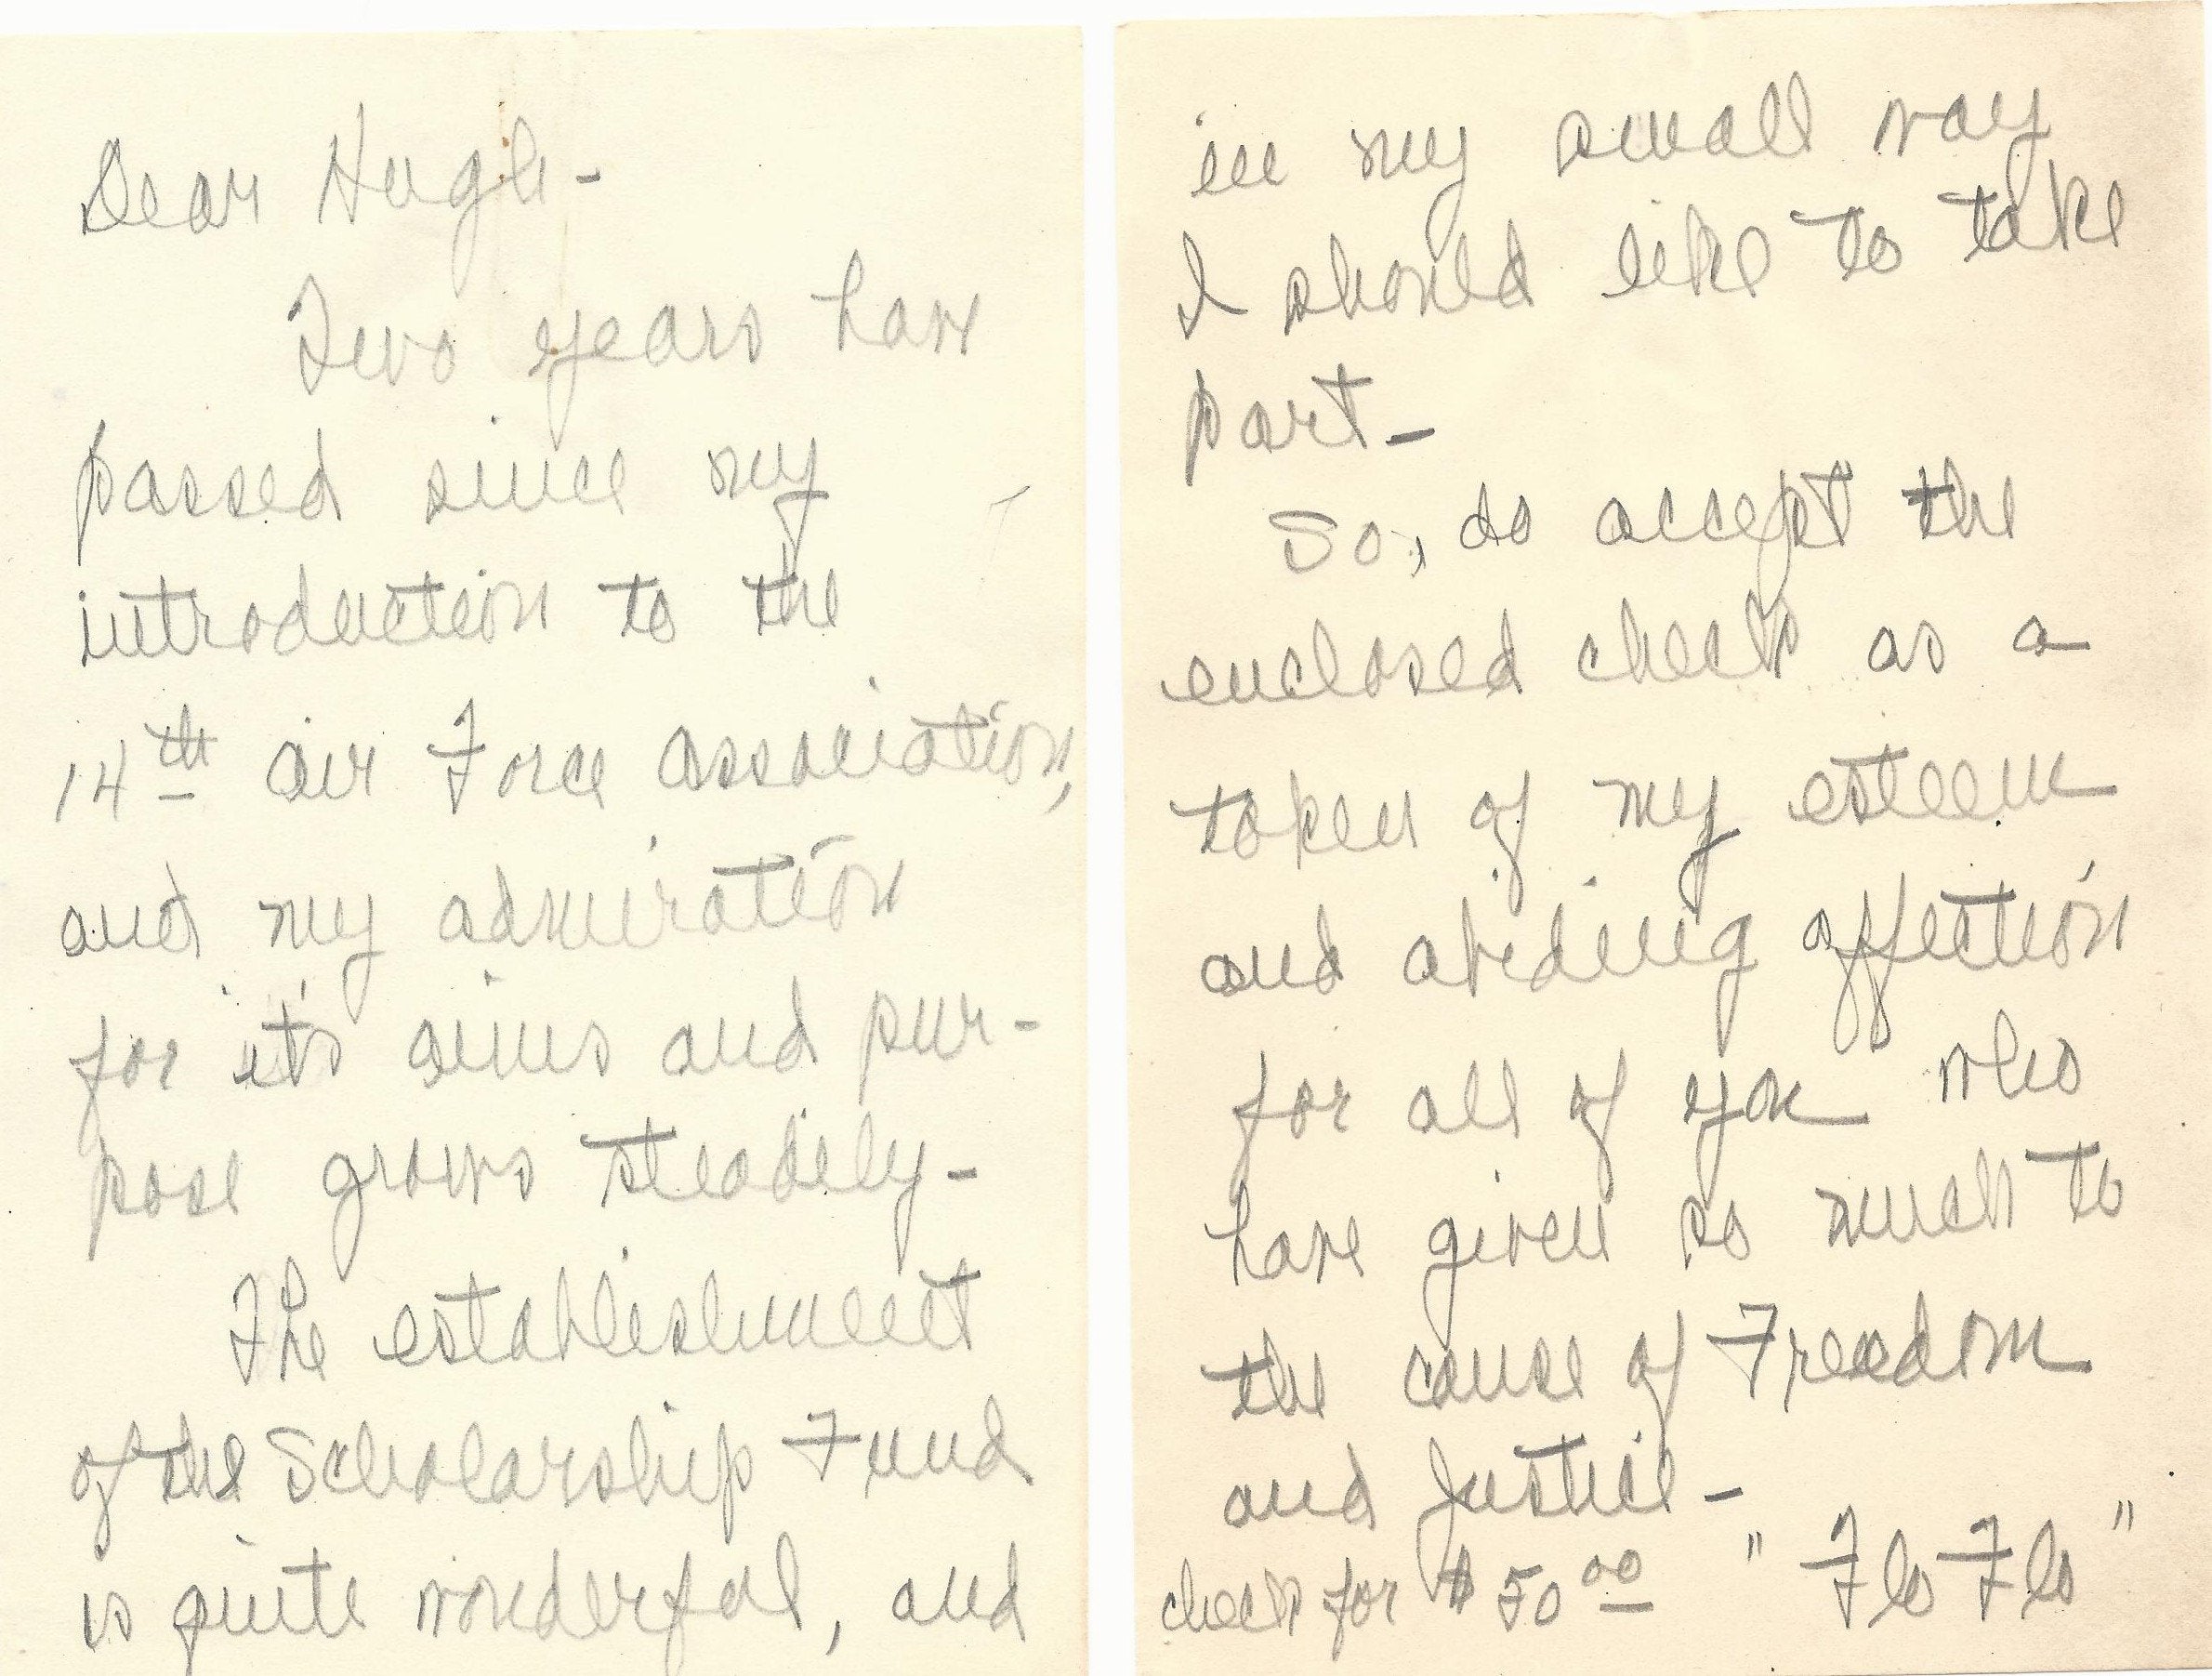 Dear Hugh-
Two years have
passed since my
introduction to the
14th Air Force Association,
and my admiration
for it's aims and pur-
pose grows steadily-
The establishment
of the Scholarship Fund
is quite wonderful, and
in my small way
I should like to take
part-
So, do accept the
enclosed check as a
token of my esteem
and abiding affection
for all of you who
have given so much to
the cause of Freedom
and Justice-
check for $50.00 "Flo Flo"